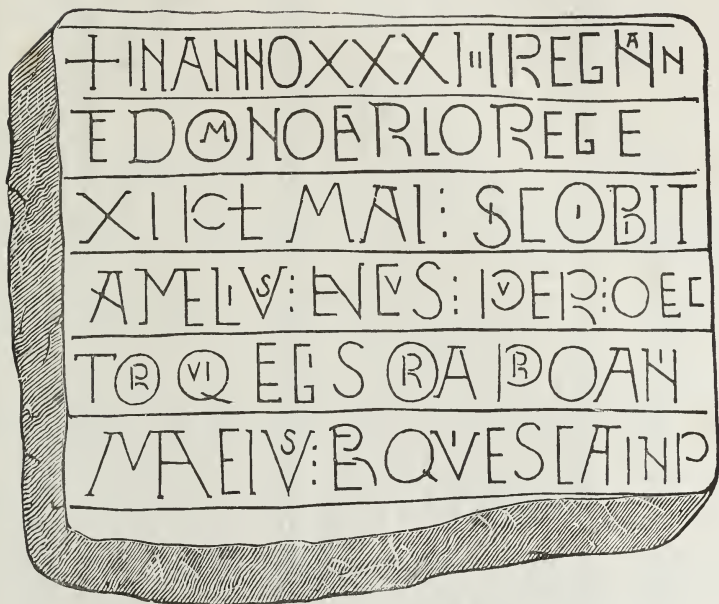 +INANNOXXXIIIIREGNAN
TEDOMNOEARLOREGE
XI KL MAI⋮ SICOBIIT
AMELIVS⋮ENCVS⋮PVER⋮OLEC
TOR QVI LEGIS ORA PROANI
MAEIVS⋮ERQVIESCATINP